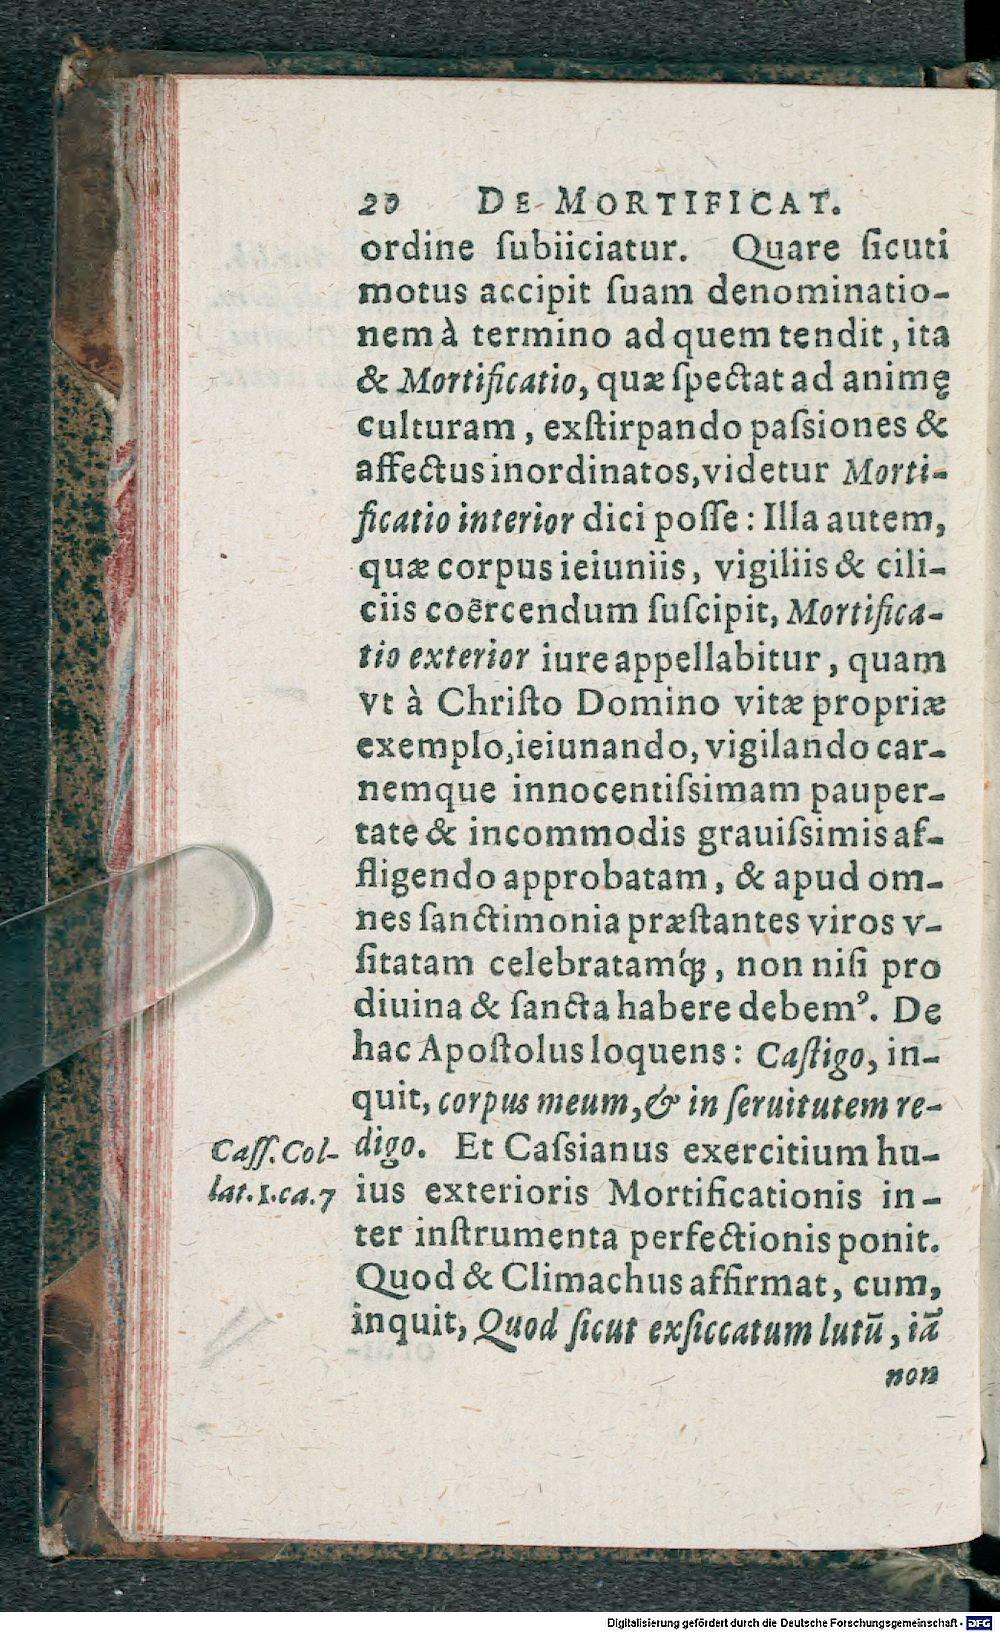 20 DE MORTIFICAT.
ordine ſubiiciatur. Quare ſicuti
motus accipit ſuam denominatio-
nem à termino ad quem tendit, ita
& Mortificatio, quæ ſpectat ad animę
culturam, exſtirpando paſsiones &
affectus inordinatos, videtur Morti-
ficatio interior dici poſſe: Illa autem,
quæ corpus ieiuniis, vigiliis & cili-
ciis coërcendum ſuſcipit, Mortifica-
tio exterior iure appellabitur, quam
vt à Chriſto Domino vitæ propriæ
exemplo, ieiunando, vigilando car-
nemque innocentiſsimam pauper-
tate & incommodis grauiſsimis af-
fligendo approbatam, & apud om-
nes ſanctimonia præſtantes viros v-
ſitatam celebratamq́ꝫ, non niſi pro
diuina & ſancta habere debemꝰ. De
hac Apoſtolus loquens: Caſtigo, in-
quit, corpus meum, & in ſeruitutem re-
digo. Et Caſsianus exercitium hu-
Caſſ. Col-
lat. 1. ca. 7
ius exterioris Mortificationis in-
ter inſtrumenta perfectionis ponit.
Quod & Climachus affirmat, cum,
inquit, Quod ſicut exſiccatum lutū, iā
non
Digitalisierung gefördert durch die Deutsche Forschungsgemeinschaft - DFG